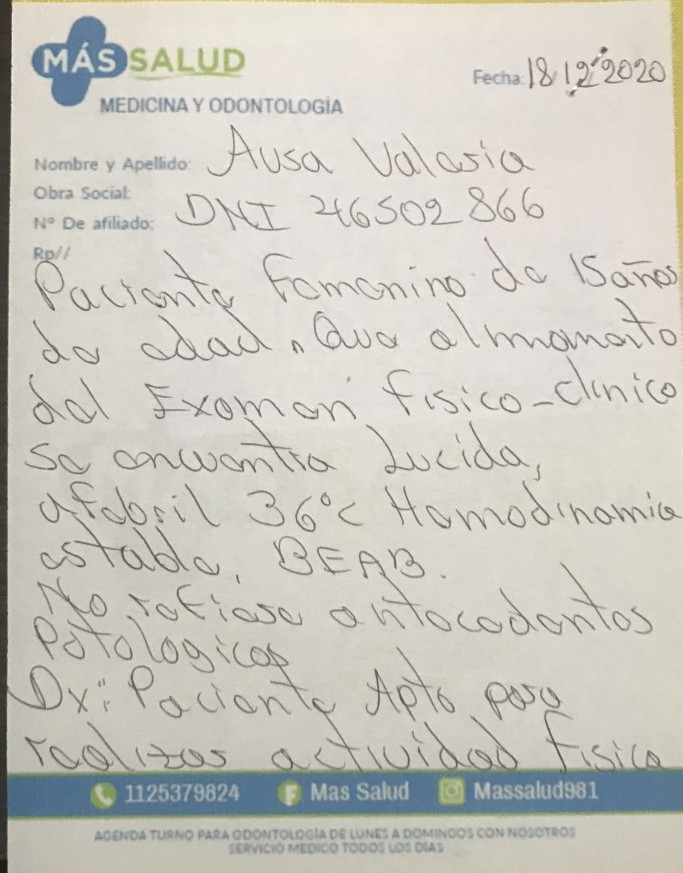 MÁS SALUD
MEDICINA Y ODONTOLOGÍA
Fecha: 18 12 2020
Nombre y Apellido: Ausa Valeria
Obra Social:
Nº De afiliado: DNI 46502866
Rp//
Paciente Femenino de 15 años
de edad, Que al momento
del Examen fisico-clinico
se encuentra Lucida,
afebril 36°C Hemodinamia
estable, BEAB.
No refiere antecedentes
Patologicos
Dx: Paciente Apto para
realizar actividad Fisica
1125379824 Mas Salud Massalud981
AGENDA TURNO PARA ODONTOLOGÍA DE LUNES A DOMINGOS CON NOSOTROS
SERVICIO MEDICO TODOS LOS DÍAS